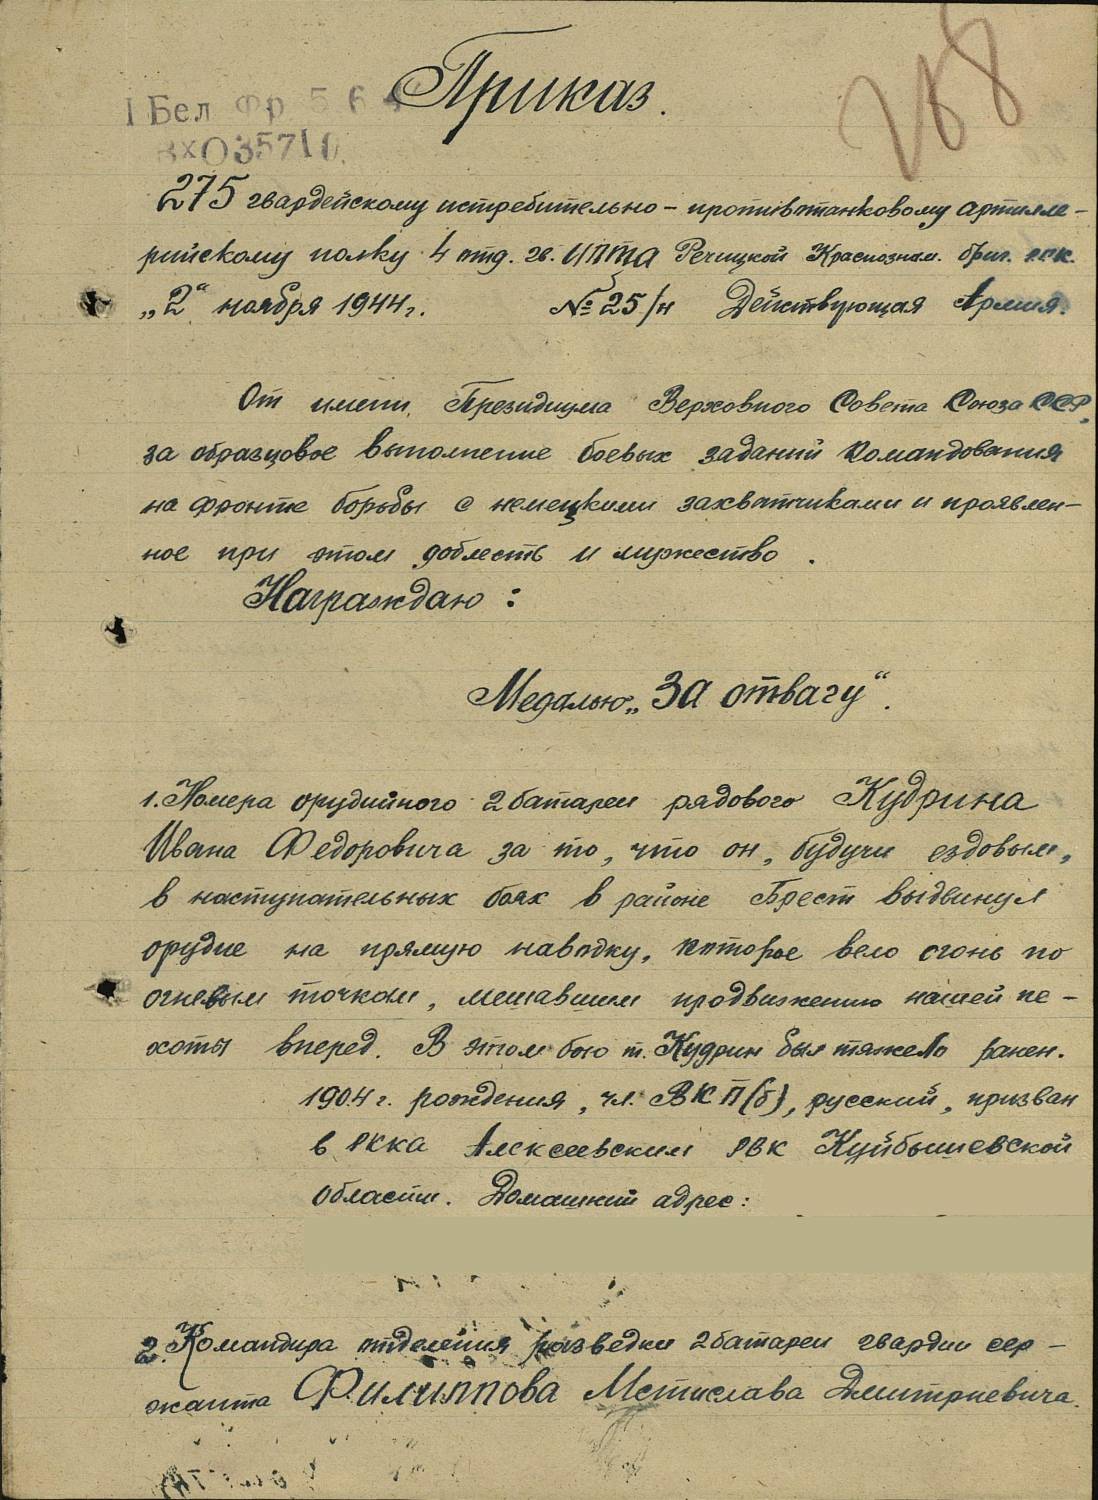 Приказ.
288
I Бел Фр 5 6 4
Вх035710
275 гвардейскому истребительно - противотанковому артилле-
рийскому полку 4 отд. гв. ИПТА Речицкой Краснознам. бриг. РГК.
„2“ ноября 1944г. № 25/н Действующая Армия.
От имени Президиума Верховного Совета Союза ССР,
за образцовое выполнение боевых заданий командования
на фронте борьбы с немецкими захватчиками и проявлен-
ное при этом доблесть и мужество.
Награждаю:
Медалью „За отвагу“.
1. Номера орудийного 2 батареи рядового Кудрина
Ивана Федоровича за то, что он, будучи ездовым,
в наступательных боях в районе Брест выдвинул
орудие на прямую наводку, которое вело огонь по
огневым точкам, мешавшим продвижению нашей пе-
хоты вперед. В этом бою т. Кудрин был тяжело ранен.
1904 г. рождения, чл. ВКП(б), русский, призван
в РККА Алексеевским РВК Куйбышевской
области. Домашний адрес:
2. Командира отделения разведки 2 батареи гвардии сер-
жанта Филиппова Мстислава Дмитриевича.